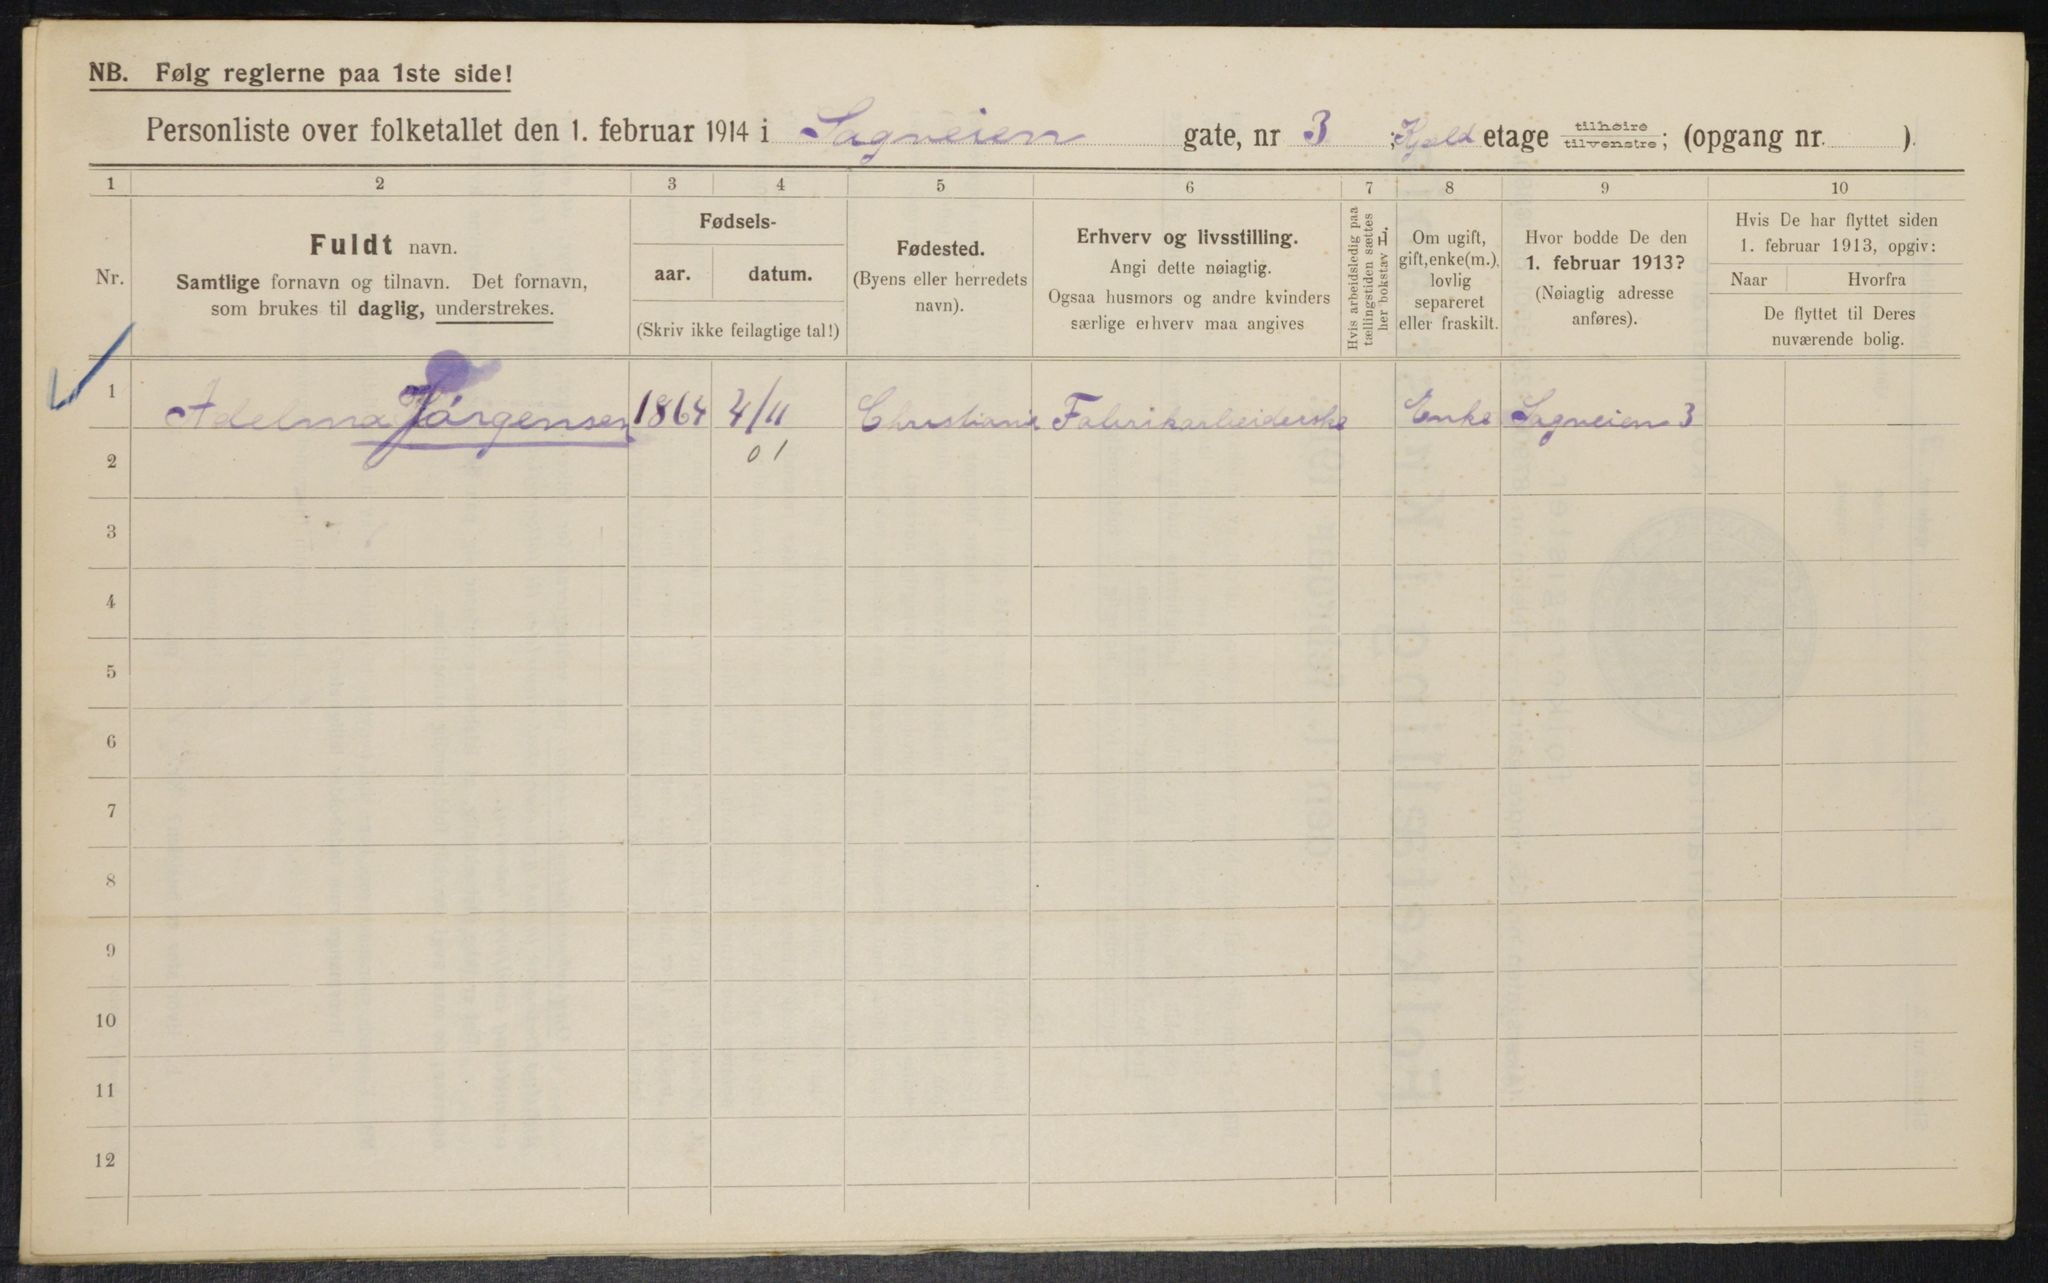 NB. Følg reglerne paa 1ste side!
Personliste over folketallet den 1. februar 1914 i Sagveien gate, nr 3 ; Kjeld etage tilhøire tilvenstre; (opgang nr. ).
1 2 3 4 5 6 7 8 9 10
Nr.
Fuldt navn.
Samtlige fornavn og tilnavn. Det fornavn,
som brukes til daglig, understrekes.
Fødsels-
aar. datum.
(Skriv ikke feilagtige tal!)
Fødested.
(Byens eller herredets
navn).
Erhverv og livsstilling.
Angi dette nøiagtig.
Ogsaa husmors og andre kvinders
særlige erhverv maa angives
Hvis arbeidsledig paa
tællingstiden sættes
her bokstav H.
Om ugift,
gift, enke(m.),
lovlig
separeret
eller fraskilt.
Hvor bodde De den
1. februar 1913?
(Nøiagtig adresse
anføres).
Hvis De har flyttet siden
1. februar 1913, opgiv:
Naar Hvorfra
De flyttet til Deres
nuværende bolig.
1 Adelma Jörgensen 1864 4/11 Christiania Fabrikarbeiderske Enke Sagveien 3
2 01
3
4
5
6
7
8
9
10
11
12